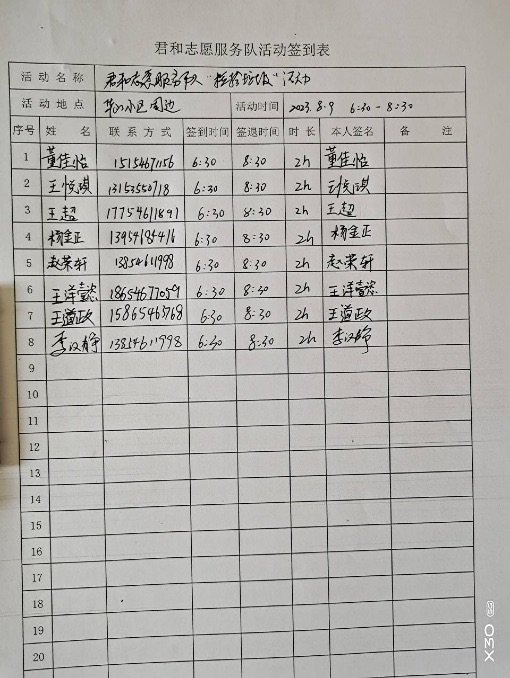 君和志愿服务队活动签到表
活动名称 君和志愿服务队"捡拾垃圾"活动
活动地点 小区周边 活动时间 2023.8.9 6:30-8:30
序号 姓名 联系方式 签到时间 签退时间 时长 本人签名 备注
1 董佳怡 15154671156 6:30 8:30 2h 董佳怡
2 王悦琪 13153550718 6:30 8:30 2h 王悦琪
3 王超 17754611891 6:30 8:30 2h 王超
4 杨金正 13954184416 6:30 8:30 2h 杨金正
5 赵荣轩 13854611998 6:30 8:30 2h 赵荣轩
6 王洋懿 18654677059 6:30 8:30 2h 王洋懿
7 王道政 15865463768 6:30 8:30 2h 王道政
8 李汶静 13854611998 6:30 8:30 2h 李汶静
9
10
11
12
13
14
15
16
17
18
19
20
X30